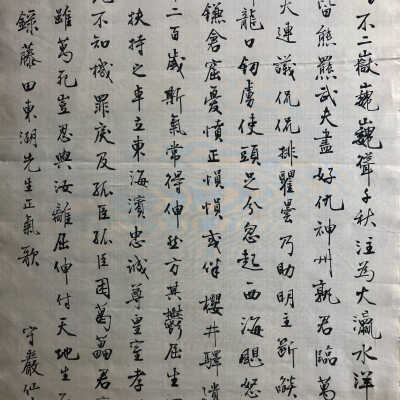 不二嶽巍巍聳千秋注為大瀛水洋
皆熊羆武夫盡好仇神州孰君臨萬
大連議侃侃排瞿曇乃助明主斷燄
龍口劒虜使頭足分忽起西海颶怒
鎌倉窟憂憤正愪愪或伴櫻井驛遺
二百歲斯氣常得伸然方其鬱屈生
扶持之卓立東海濱忠誠尊皇室孝
不知機罪戾及孤臣孤臣困葛藟君
雖萬死豈忍與汝離屈伸付天地生
錄藤田東湖先生正氣歌 守嚴仙